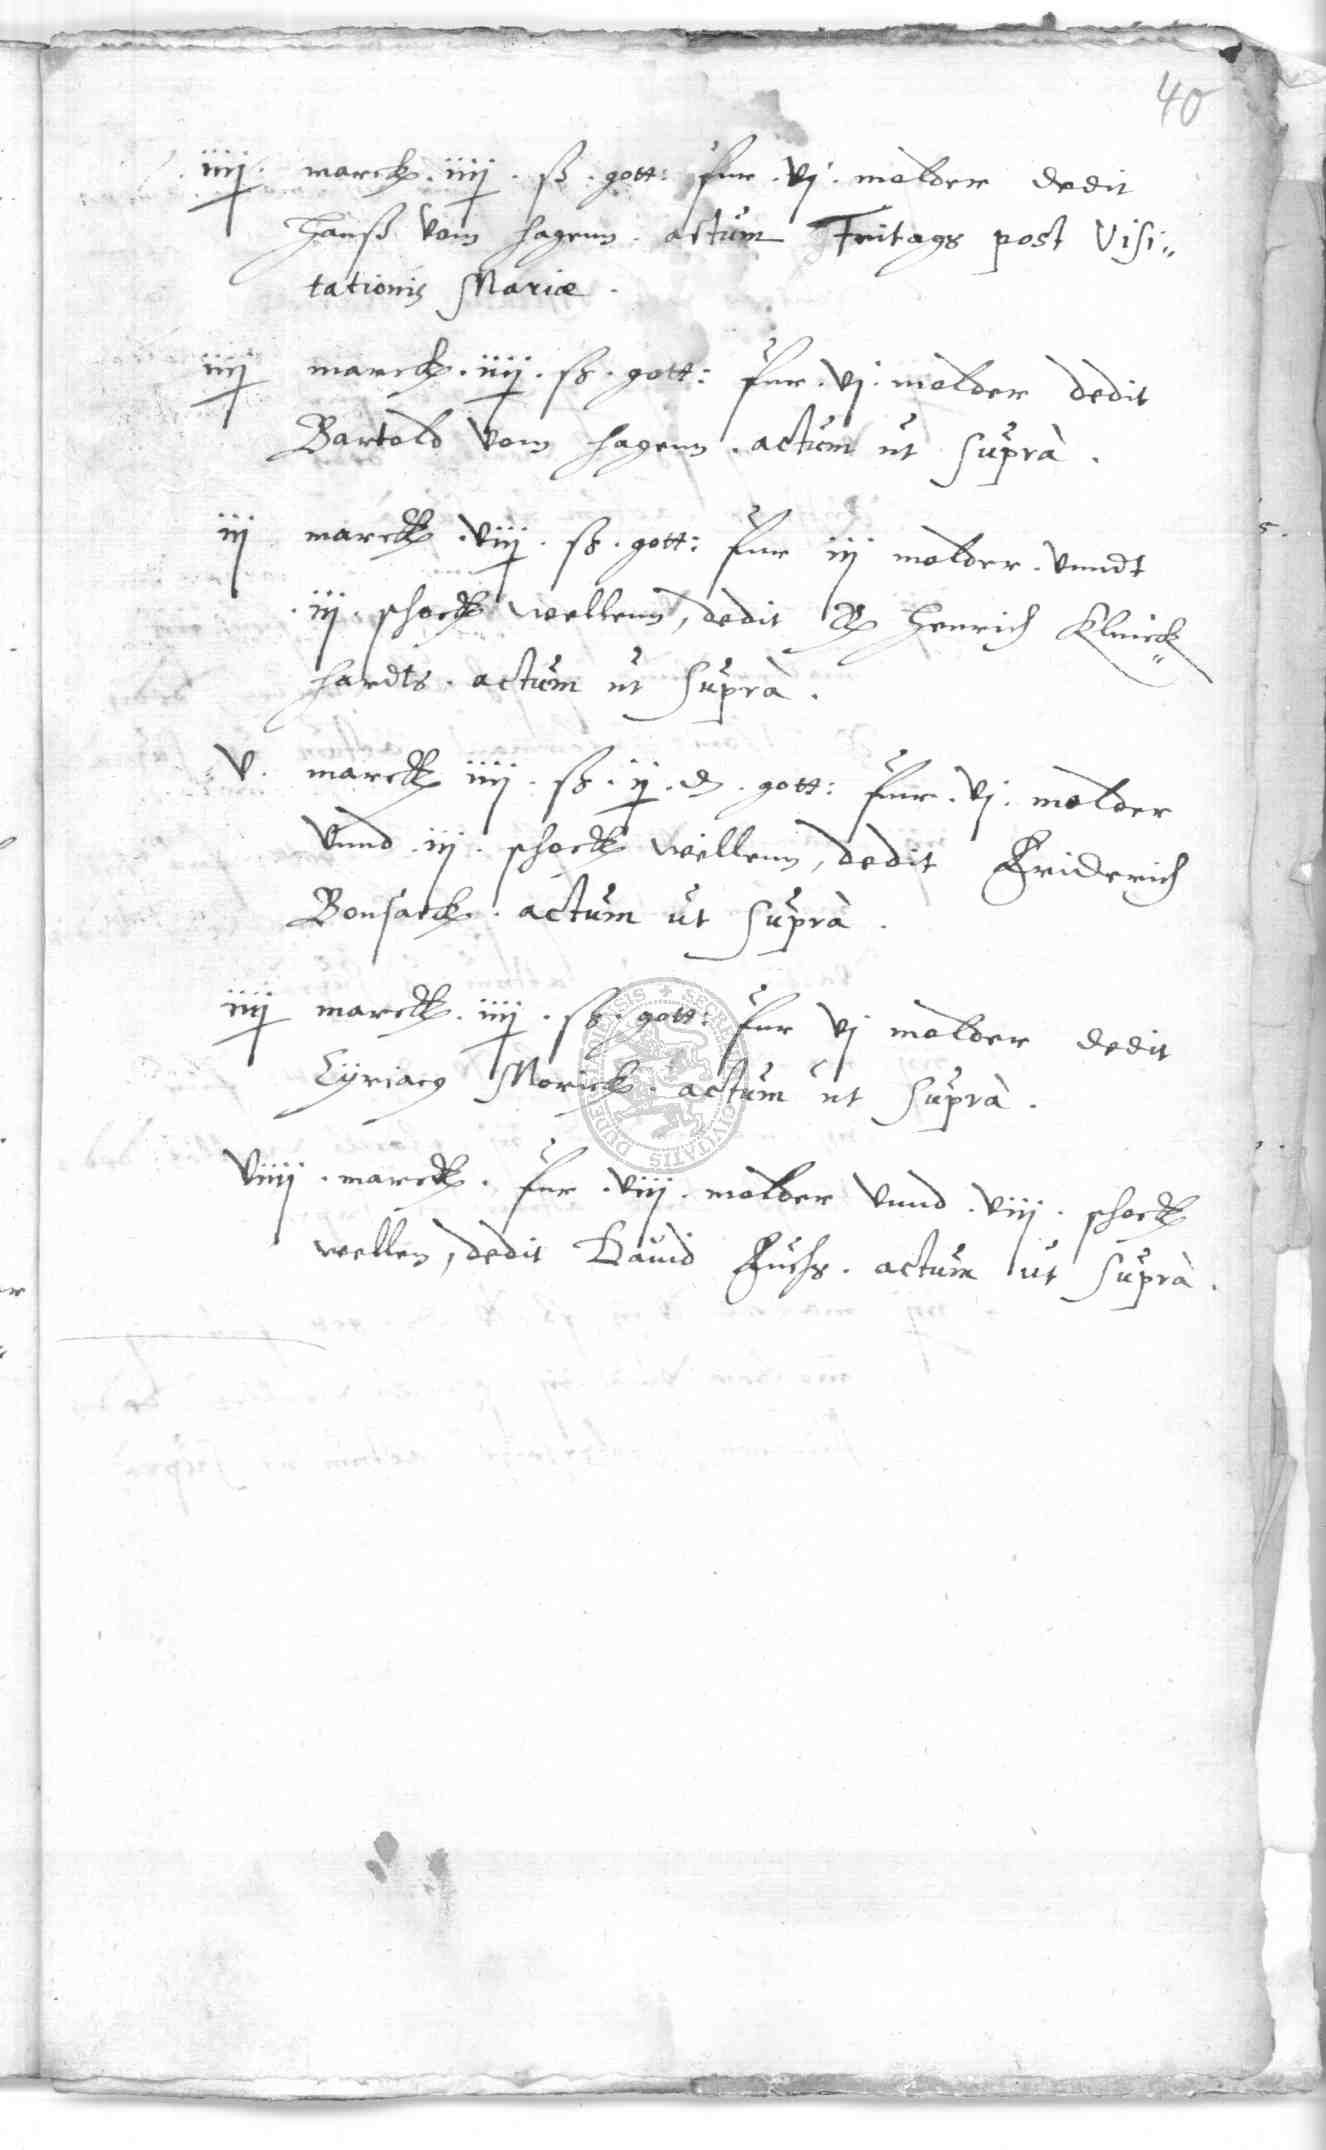 40
iiij. marck. iiij. ß. gott: fur. vj. molder dedit
Hanß vom Hagenn. actum Fritags post Visi„
tationis Mariæ.
iiij marck. iiij. ß. gott: fur. vj. molder dedit
Bartold vom Hagenn. actum ut suprà.
iij marck. viij. ß. gott: fur iij molder. vnndt
.iij. schock wellenn, dedit Henrich Klinck„
hardts. actum ut suprà.
V. marck iiij. ß. ij. d. gott: fur. vj. molder
vnnd. iij. schock wellenn, dedit Friderich
Bonsack. actum ut suprà.
iiij marck. iiij. ß. gott: fur vj molder dedit
Cÿriacg Morick. actum ut suprà.
Viiij. marck. fur. viij. molder vnnd. viij. schock
wellen, dedit Dauid Fuchs. actum ut suprà.
SECRET CIVITATIS